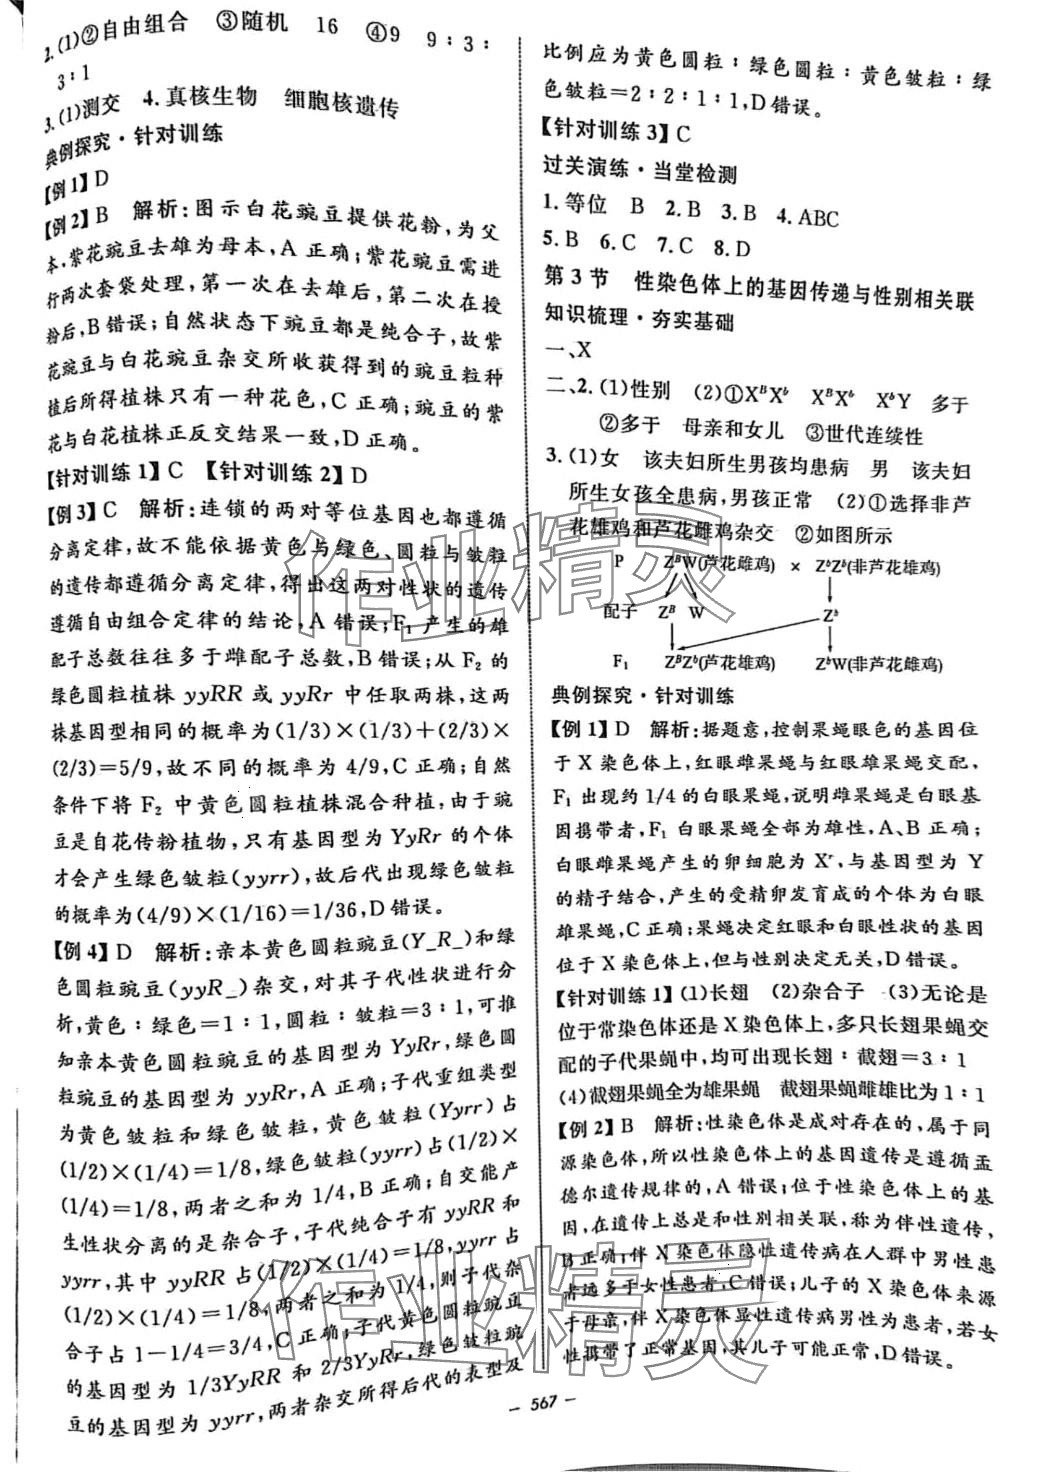 2. (1)②自由组合　③随机　16　④9　9∶3∶
3∶1
3. (1)测交　4. 真核生物　细胞核遗传
典例探究·针对训练
【例1】D
【例2】B　解析:图示白花豌豆提供花粉,为父
本,紫花豌豆去雄为母本,A正确;紫花豌豆需进
行两次套袋处理,第一次在去雄后,第二次在授
粉后,B错误;自然状态下豌豆都是纯合子,故紫
花豌豆与白花豌豆杂交所收获得到的豌豆粒种
植后所得植株只有一种花色,C正确;豌豆的紫
花与白花植株正反交结果一致,D正确。
【针对训练1】C　【针对训练2】D
【例3】C　解析:连锁的两对等位基因也都遵循
分离定律,故不能依据黄色与绿色、圆粒与皱粒
的遗传都遵循分离定律,得出这两对性状的遗传
遵循自由组合定律的结论,A错误;F₁产生的雄
配子总数往往多于雌配子总数,B错误;从F₂的
绿色圆粒植株yyRR或yyRr中任取两株,这两
株基因型相同的概率为(1/3)×(1/3)+(2/3)×
(2/3)=5/9,故不同的概率为4/9,C正确;自然
条件下将F₂中黄色圆粒植株混合种植,由于豌
豆是自花传粉植物,只有基因型为YyRr的个体
才会产生绿色皱粒(yyrr),故后代出现绿色皱粒
的概率为(4/9)×(1/16)=1/36,D错误。
【例4】D　解析:亲本黄色圆粒豌豆(Y_R_)和绿
色圆粒豌豆(yyR_)杂交,对其子代性状进行分
析,黄色∶绿色=1∶1,圆粒∶皱粒=3∶1,可推
知亲本黄色圆粒豌豆的基因型为YyRr,绿色圆
粒豌豆的基因型为yyRr,A正确;子代重组类型
为黄色皱粒和绿色皱粒,黄色皱粒(Yyrr)占
(1/2)×(1/4)=1/8,绿色皱粒(yyrr)占(1/2)×
(1/4)=1/8,两者之和为1/4,B正确;自交能产
生性状分离的是杂合子,子代纯合子有yyRR和
yyrr,其中yyRR占(1/2)×(1/4)=1/8,yyrr占
(1/2)×(1/4)=1/8,两者之和为1/4,则子代杂
合子占1-1/4=3/4,C正确;子代黄色圆粒豌豆
的基因型为1/3YyRR和2/3YyRr,绿色皱粒豌
豆的基因型为yyrr,两者杂交所得后代的表型及
比例应为黄色圆粒∶绿色圆粒∶黄色皱粒∶绿
色皱粒=2∶2∶1∶1,D错误。
【针对训练3】C
过关演练·当堂检测
1. 等位　B　2. B　3. B　4. ABC
5. B　6. C　7. C　8. D
第3节　性染色体上的基因传递与性别相关联
知识梳理·夯实基础
一、X
二、2. (1)性别　(2)①XᴮXᵇ　XᴮXᵇ　XᵇY　多于
②多于　母亲和女儿　③世代连续性
3. (1)女　该夫妇所生男孩均患病　男　该夫妇
所生女孩全患病,男孩正常　(2)①选择非芦
花雄鸡和芦花雌鸡杂交　②如图所示
P　ZᴮW(芦花雌鸡)　×　ZᵇZᵇ(非芦花雄鸡)
配子　Zᴮ　W　Zᵇ
F₁　ZᴮZᵇ(芦花雄鸡)　ZᵇW(非芦花雌鸡)
典例探究·针对训练
【例1】D　解析:据题意,控制果蝇眼色的基因位
于X染色体上,红眼雌果蝇与红眼雄果蝇交配,
F₁出现约1/4的白眼果蝇,说明雌果蝇是白眼基
因携带者,F₁白眼果蝇全部为雄性,A、B正确;
白眼雌果蝇产生的卵细胞为Xʳ,与基因型为Y
的精子结合,产生的受精卵发育成的个体为白眼
雄果蝇,C正确;果蝇决定红眼和白眼性状的基因
位于X染色体上,但与性别决定无关,D错误。
【针对训练1】(1)长翅　(2)杂合子　(3)无论是
位于常染色体还是X染色体上,多只长翅果蝇交
配的子代果蝇中,均可出现长翅∶截翅=3∶1
(4)截翅果蝇全为雄果蝇　截翅果蝇雌雄比为1∶1
【例2】B　解析:性染色体是成对存在的,属于同
源染色体,所以性染色体上的基因遗传是遵循孟
德尔遗传规律的,A错误;位于性染色体上的基
因,在遗传上总是和性别相关联,称为伴性遗传,
B正确;伴X染色体隐性遗传病在人群中男性患
者远多于女性患者,C错误;儿子的X染色体来源
于母亲,伴X染色体显性遗传病男性为患者,若女
性携带了正常基因,其儿子可能正常,D错误。
— 567 —
作业精灵
作业精灵